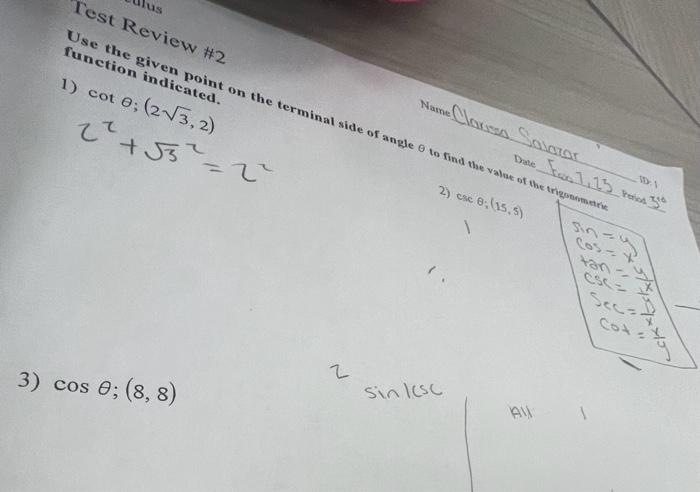 ulus
Test Review #2
Name Clarissa Salazar
ID: 1
Date 7, 23 Period 3rd
Use the given point on the terminal side of angle θ to find the value of the trigonometric
function indicated.
1) cot θ; (2√3, 2)
2² + √3² = 2²
2) csc θ; (15, 5)
1
sin = y
cos = x
tan = y/x
csc = 1/y
sec = 1/x
cot = x/y
3) cos θ; (8, 8)
2
sin/csc
All
1